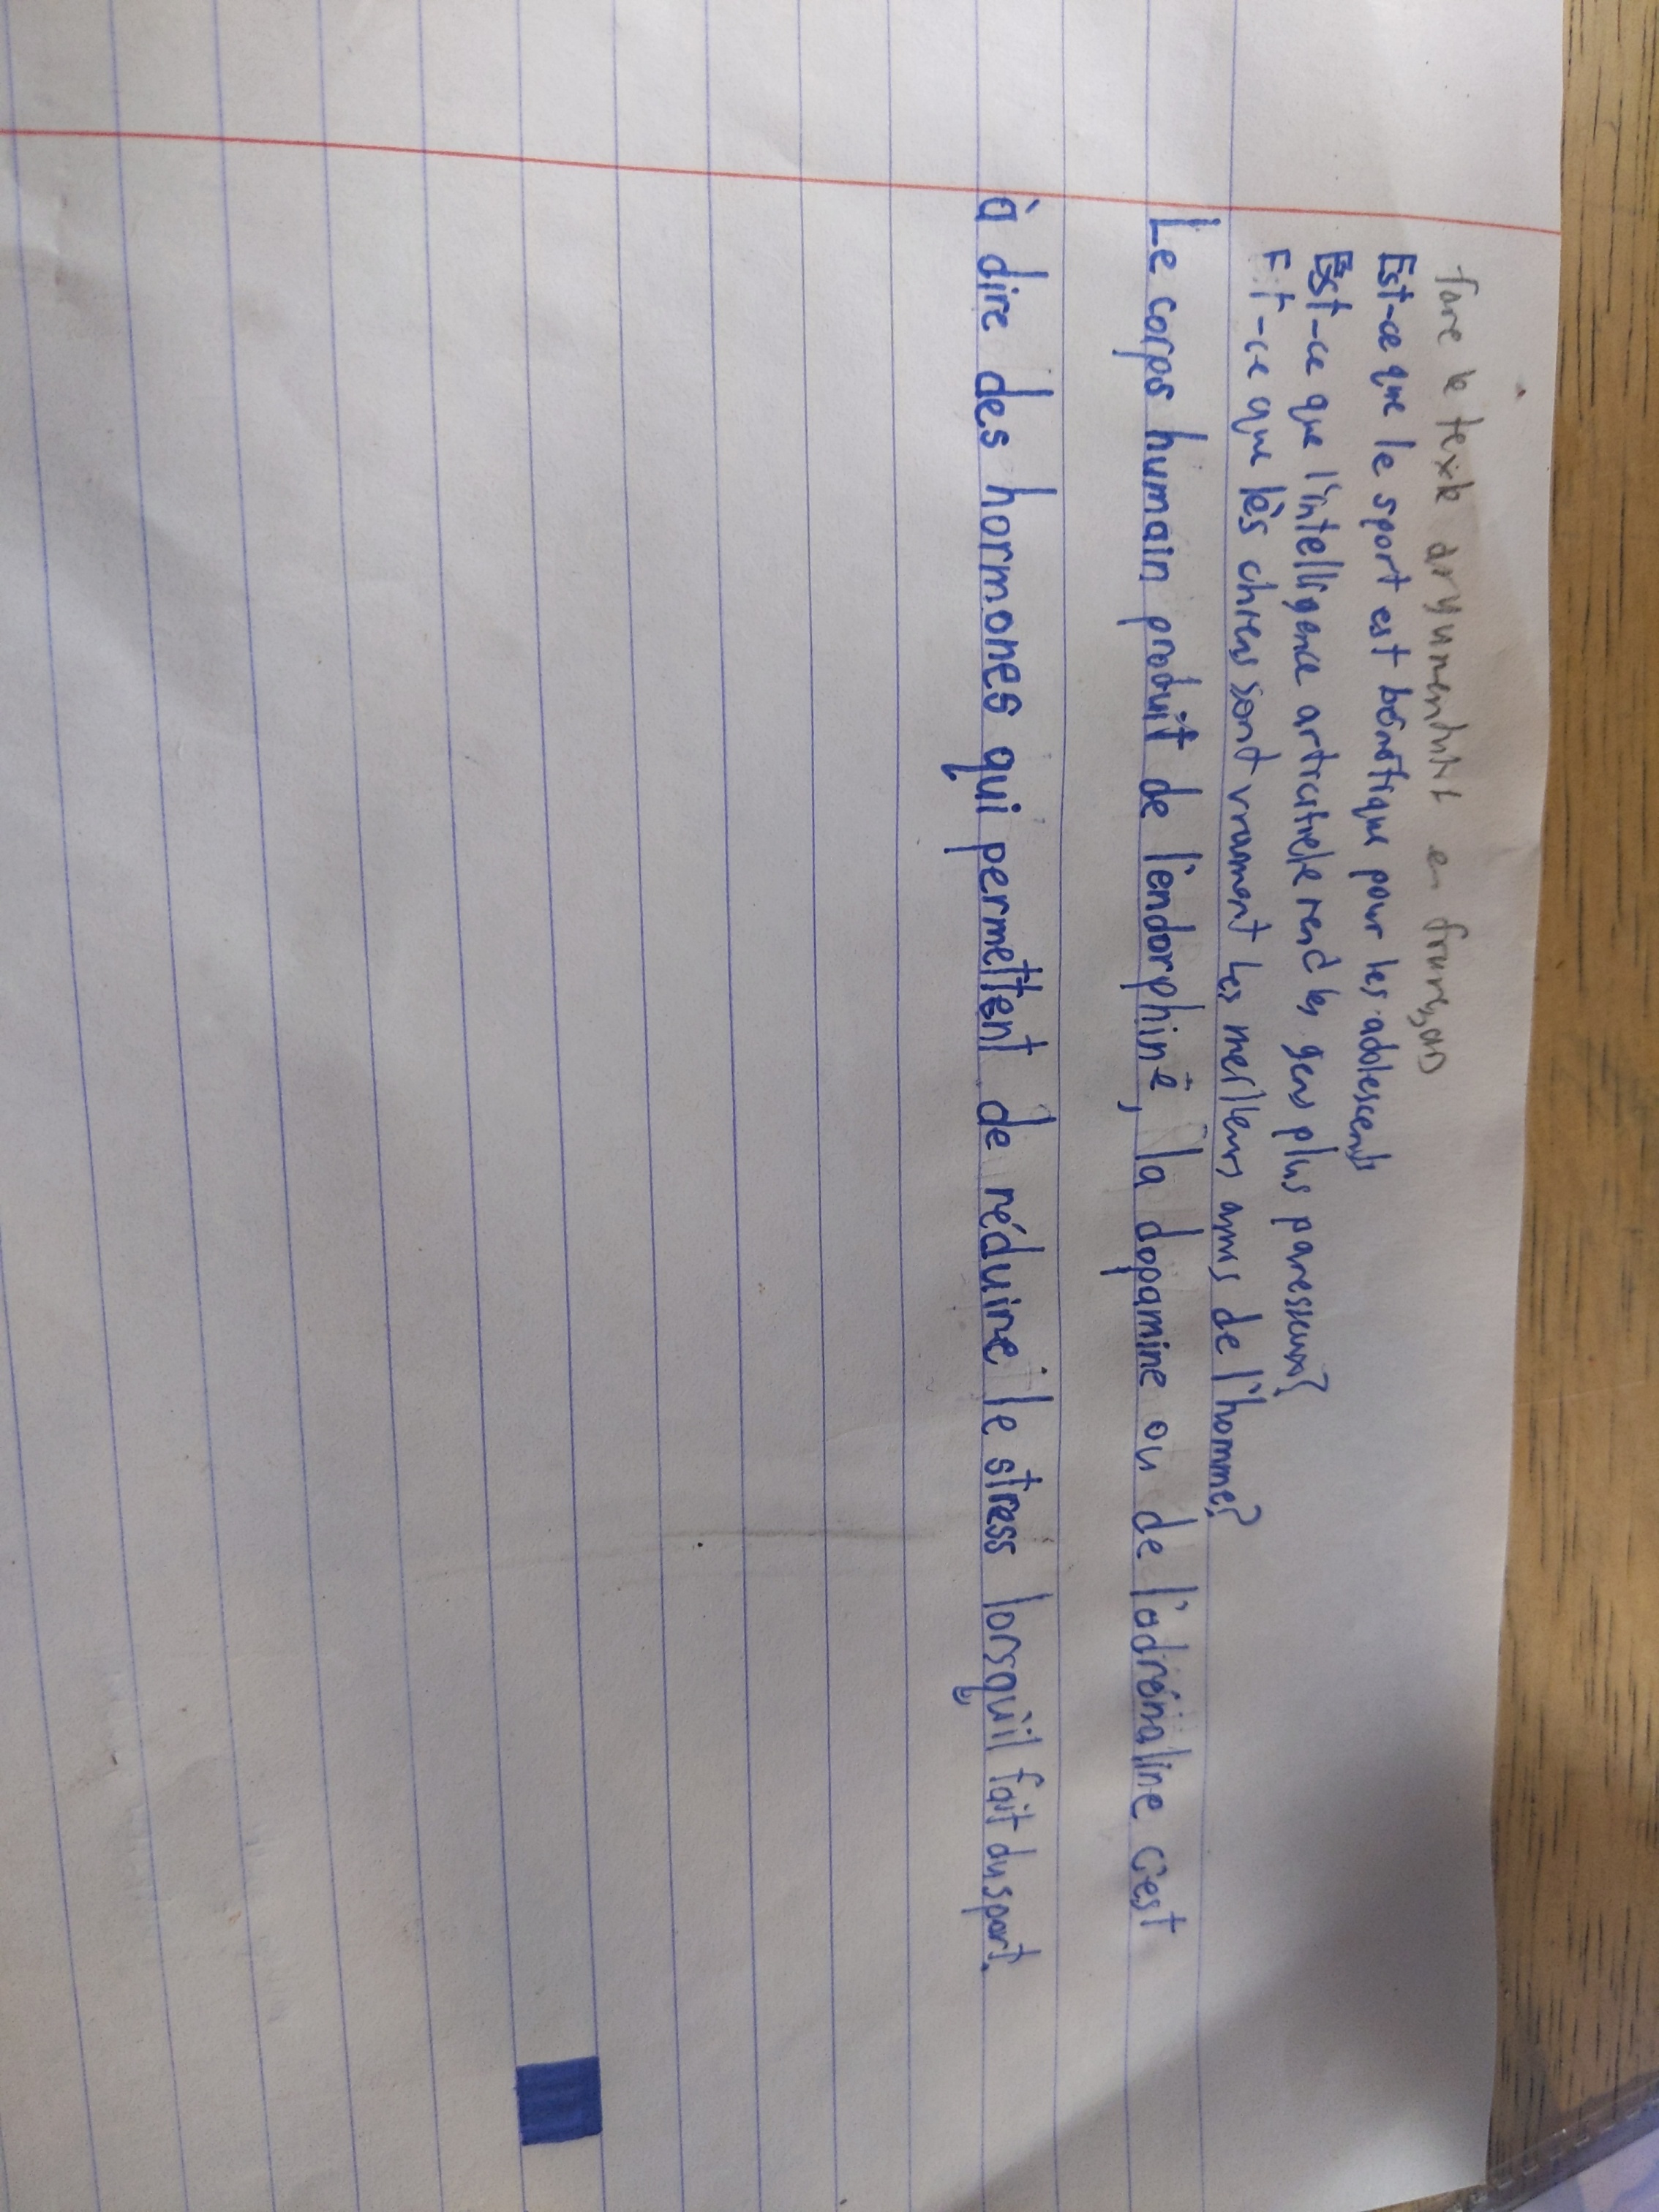 Faire le texte argumentatif en français
Est-ce que le sport est bénéfique pour les adolescents
Est-ce que l'intelligence articifiele rend les gens plus paresseux?
Est-ce que les chiens sont vraiment les meilleurs amis de l'homme?
Le corps humain produit de l'endorphine, la dopamine ou de l'adrénaline c'est
à dire des hormones qui permettent de réduire le stress lorsqu'il fait du sport.